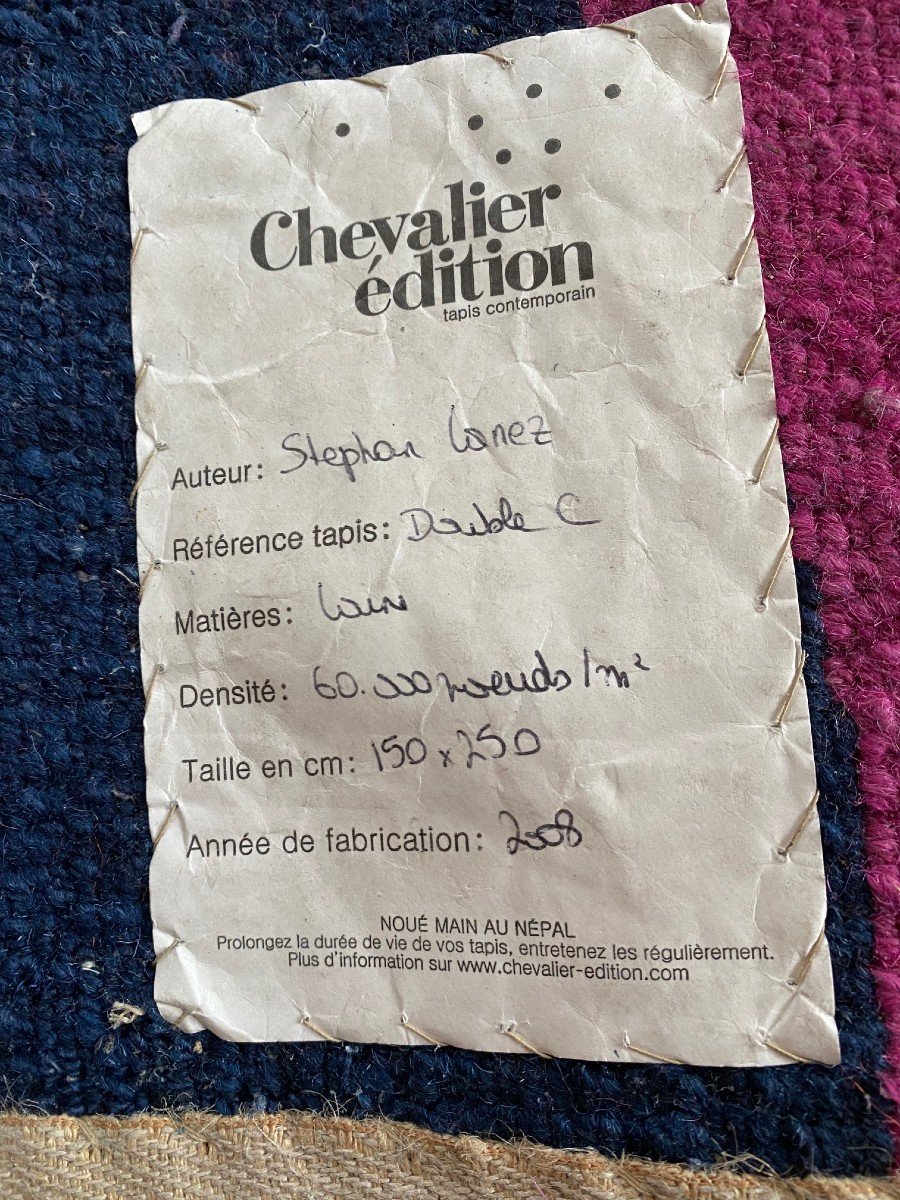 Chevalier
édition
tapis contemporain
Auteur: Stephan Lanez
Référence tapis: Double C
Matières: Laine
Densité: 60.000 noeuds/m²
Taille en cm: 150 x 250
Année de fabrication: 2008
NOUÉ MAIN AU NÉPAL
Prolongez la durée de vie de vos tapis, entretenez les régulièrement.
Plus d'information sur www.chevalier-edition.com